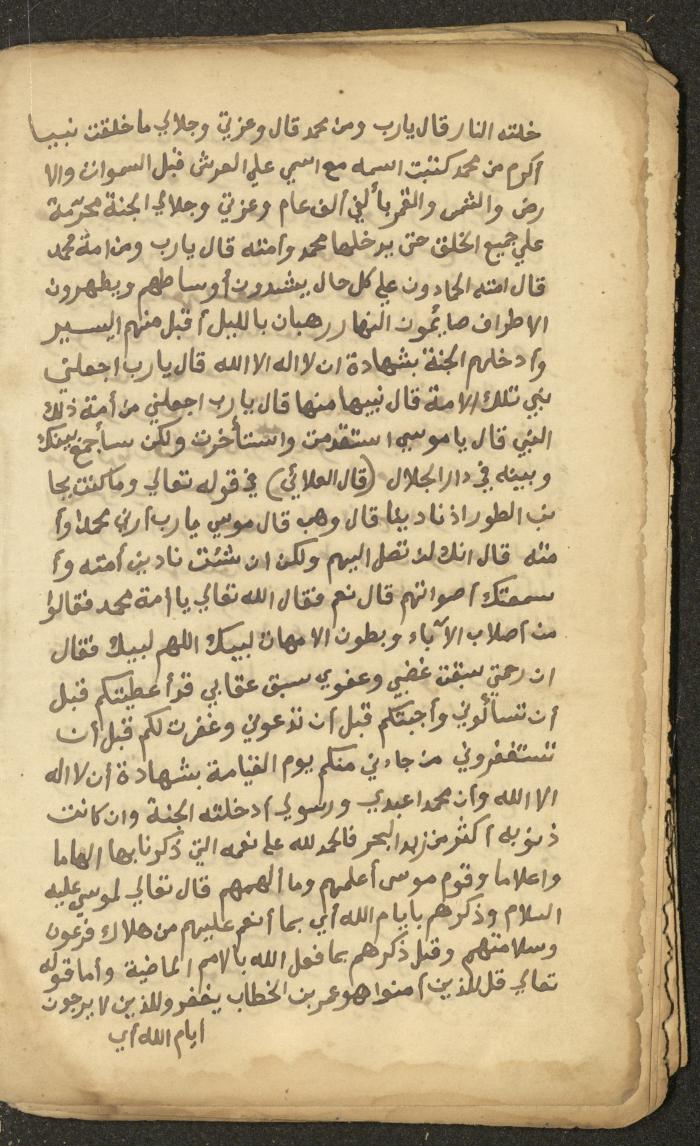 خلته النار قال يارب ومن محمد قال وعزتي وجلالي ما خلقت نبيا
أكرم من محمد كتبت اسمه مع اسمي علي العرش قبل السموات والا
رض والشمس والقمر بألفي ألف عام وعزتي وجلالي الجنة محرّمة
علي جميع الخلق حتى يدخلها محمد وأمته قال يارب ومن امة محمد
قال امته الحمادون علي كل حال يشدون أوساطهم ويطهرون
الاطراف صائمون النهار رهبان بالليل أقبل منهم اليسير
وأدخلهم الجنة بشهادة ان لا اله الا الله قال يارب اجعلني
نبي تلك الامة قال نبيها منها قال يارب اجعلني من أمة ذلك
النبي قال يا موسي استقدمت واستأخرت ولكن سأجمع بينك
وبينه في دار الجلال (قال العلائي) في قوله تعالي وما كنت بجا
نب الطور اذ نادينا قال وهب قال موسي يارب أرني محمدا وأ
مته قال انك لن تصل اليهم ولكن ان شئت ناديت أمته وأ
سمعتك أصواتهم قال نعم فقال الله تعالي يا أمة محمد فقالوا
من أصلاب الآباء وبطون الامهات لبيك اللهم لبيك فقال
ان رحمتي سبقت غضبي وعفوي سبق عقابي قد أعطيتكم قبل
أن تسألوني وأجبتكم قبل أن تدعوني وغفرت لكم قبل أن
تستغفروني من جاءني منكم يوم القيامة بشهادة أن لا اله
الا الله وأن محمدا عبدي ورسولي أدخلته الجنة وان كانت
ذنوبه أكثر من زبد البحر فالحمد لله علي نعمه التي ذكرنا بها الهاما
واعلاما وقوم موسى أعلمهم وما ألهمهم قال تعالي لموسي عليه
السلام وذكرهم بايام الله أي بما أنعم عليهم من هلاك فرعون
وسلامتهم وقيل ذكرهم بما فعل الله بالامم الماضية وأما قوله
تعالي قل للذين آمنوا هو عمر بن الخطاب يغفروا للذين لا يرجون
ايام الله أي